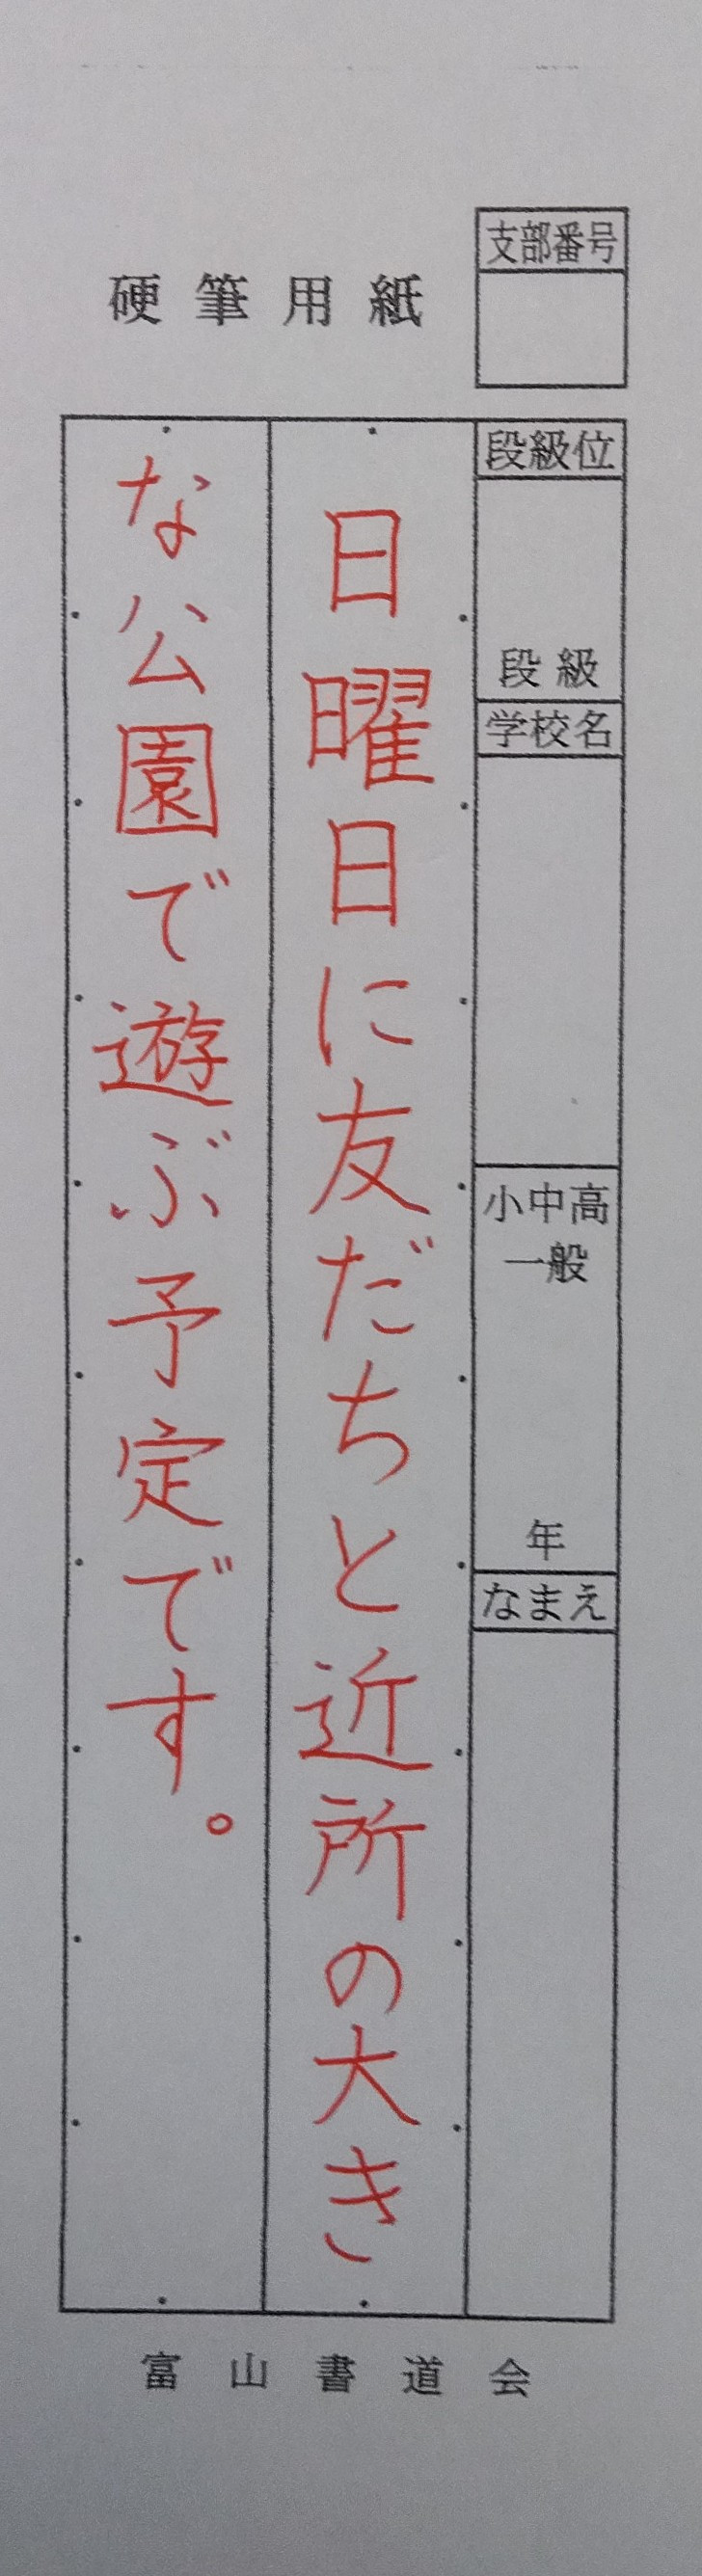 硬筆用紙
支部番号
段級位
段級
学校名
小中高
一般
年
なまえ
日曜日に友だちと近所の大き
な公園で遊ぶ予定です。
富山書道会